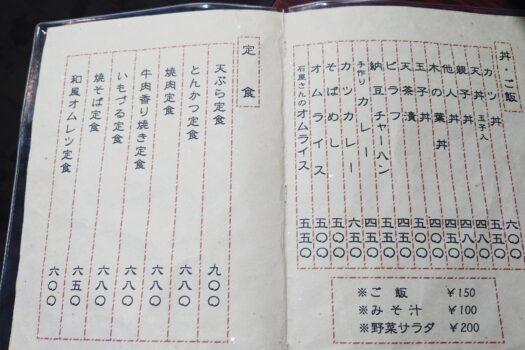 丼・ご飯
カツ丼 六〇〇
天丼 玉子入 五五〇
親子丼 四八〇
他人丼 四八〇
木の葉丼 四五〇
玉子丼 四五〇
天茶漬 五五〇
ピラフ 四五〇
納豆チャーハン 五〇〇
手作りカレー 四五〇
カツカレー 六五〇
そばめし 五〇〇
オムライス 五五〇
石屋さんのオムライス 五五〇
※ご飯 ¥150
※みそ汁 ¥100
※野菜サラダ ¥200
定食
天ぷら定食 九〇〇
とんかつ定食 六八〇
焼肉定食 六八〇
牛肉香り焼き定食 六八〇
いもづる定食 六八〇
焼そば定食 六五〇
和風オムレツ定食 六〇〇